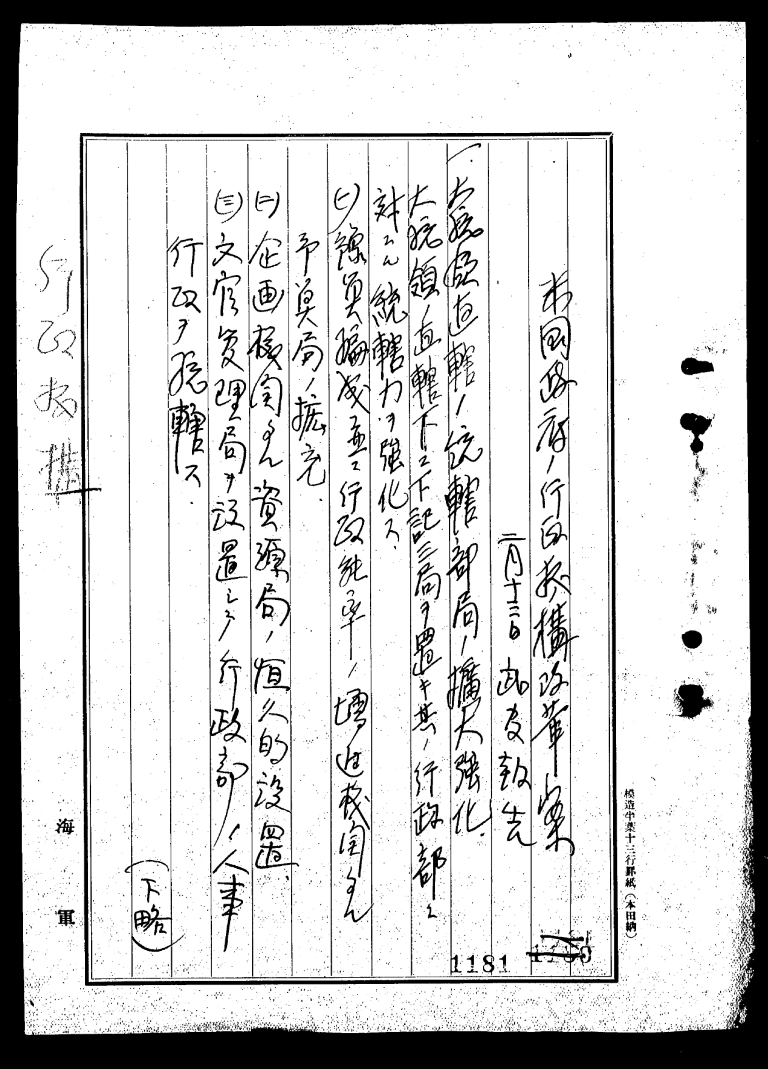 米國政府ノ行政機構改革案
二月十三日 武官報告
一、大統領直轄ノ統轄部局ノ擴大強化.
大統領ノ直轄下ニ下記三局ヲ置キ其ノ行政部ニ
対スル統轄力ヲ強化ス.
(一) 豫算編成並ニ行政能率ノ増進機関タル
予算局ノ擴充.
(二) 企画機関タル資源局ノ恒久的設置.
(三) 文官管理局ヲ設置シテ行政部ノ人事
行政ヲ総轄ス.
(下略)
行政機構
海軍
模造半葉十三行罫紙(本田納)
1181